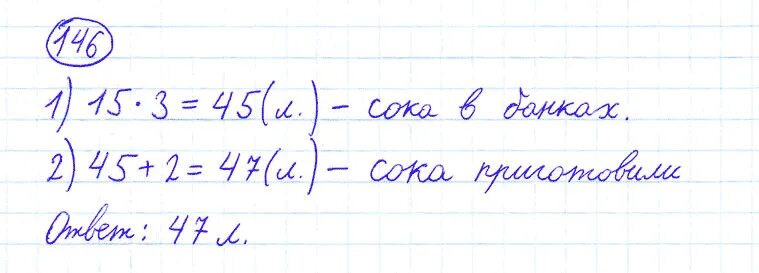 146
1) 15 · 3 = 45 (л.) – сока в банках.
2) 45 + 2 = 47 (л.) – сока приготовили
Ответ: 47 л.